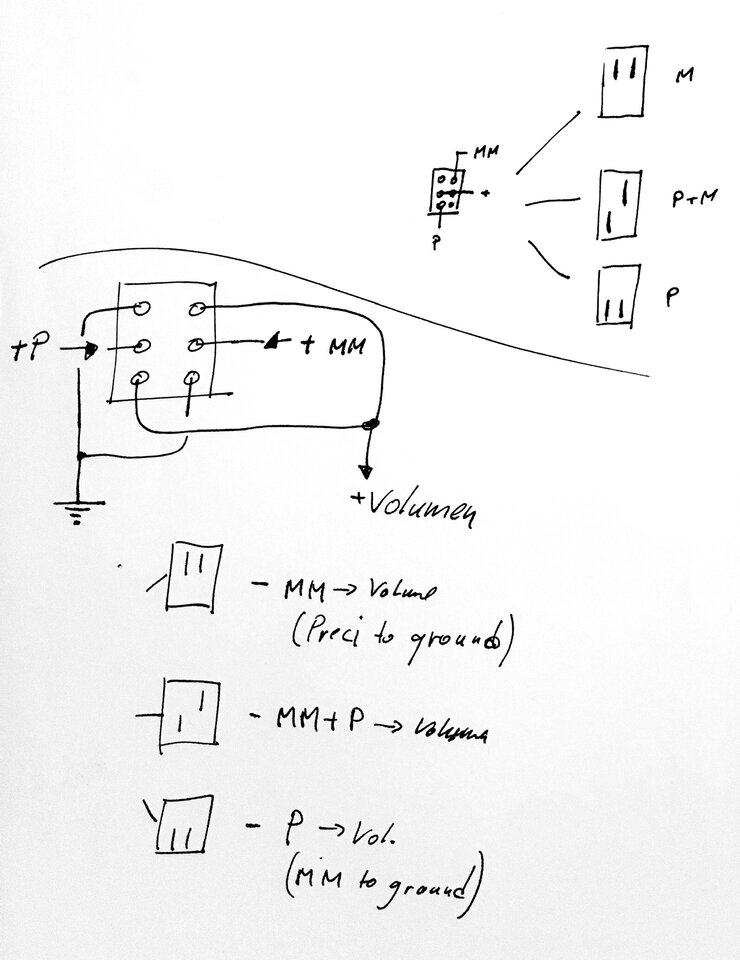 M
MM
+
P+M
P
P
+P
+ MM
+Volumen
- MM → Volume
(Preci to ground)
- MM+P → Volume
- P → Vol.
(MM to ground)